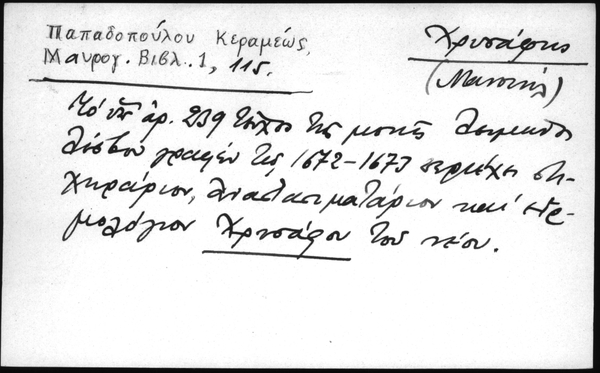 Παπαδοπούλου Κεραμέως,
Μαυρογ. Βιβλ. 1, 115.
Χρυσάφης
(Μανουήλ)
Τό ὑπ' ἀρ. 239 τεῦχος τῆς μονῆς Λειμῶνος
Λέσβου γραφέν τῷ 1672-1673 περιέχει στι-
χηράριον, Ἀναστασιματάριον καί εἱρ-
μολόγιον Χρυσάφου τοῦ νέου.